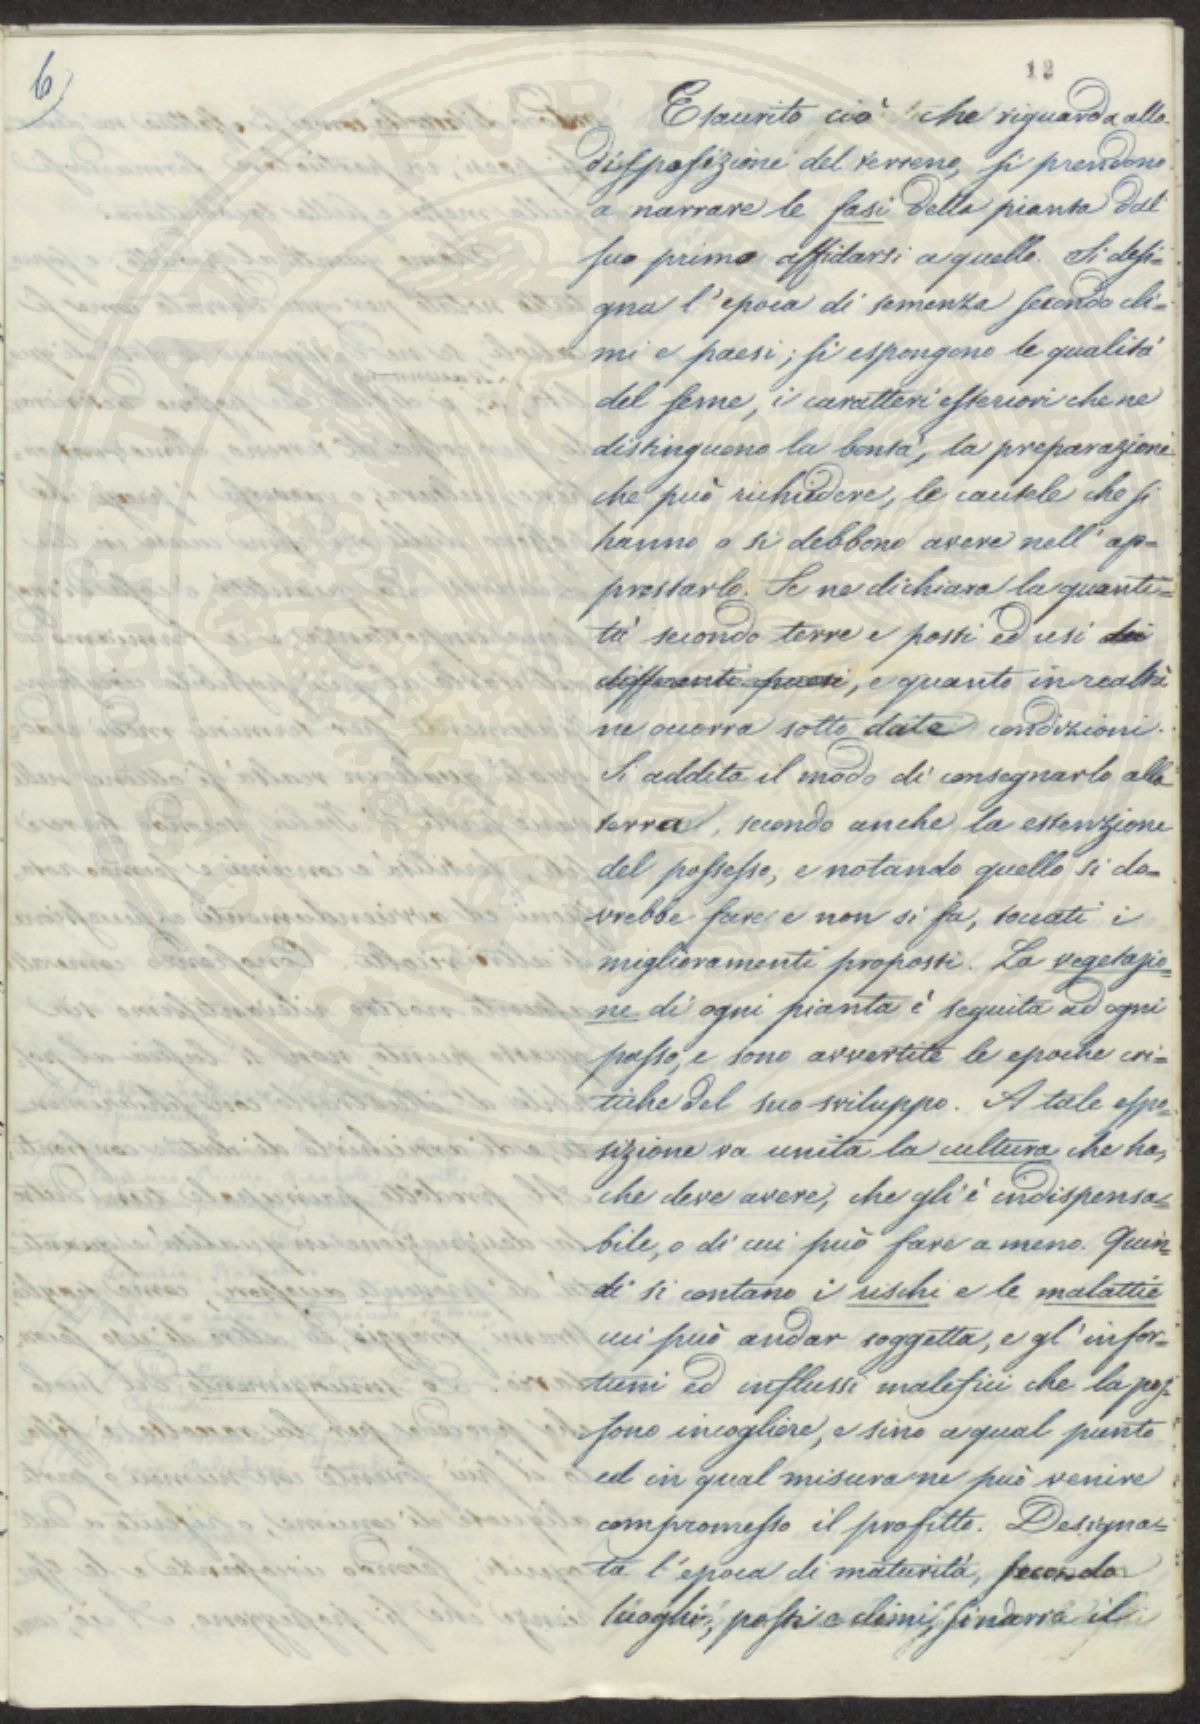 6)
12
Esaurito ciò che riguarda alla
disposizione del terreno, si prendono
a narrare le fasi della pianta dal
suo primo affidarsi a quello. Si desi=
gna l'epoca di semenza secondo cli=
mi e paesi; si espongono le qualità
del seme, i caratteri esteriori che ne
distinguono la bontà, la preparazione
che può richiedere, le cautele che si
hanno o si debbono avere nell'ap=
prestarlo. Se ne dichiara la quanti=
tà secondo terre e posti ed usi dei
differenti paesi, e quanto in realtà
ne occorra sotto date condizioni.
Si addita il modo di consegnarlo alla
terra, secondo anche la estenzione
del possesso, e notando quello si do=
vrebbe fare e non si fa, toccati i
miglioramenti proposti. La vegetazio=
ne di ogni pianta è seguita ad ogni
passo, e sono avvertite le epoche cri=
tiche del suo sviluppo. A tale espo=
sizione va unita la cultura che ha,
che deve avere, che gli è indispensa=
bile, o di cui può fare a meno. Quin=
di si contano i rischi e le malattie
cui può andar soggetta, e gl'infor=
tuni ed influssi malefici che la pos=
sono incogliere, e sino a qual punto
ed in qual misura ne può venire
compromesso il profitto. Designa=
ta l'epoca di maturità, secondo
luoghi, posti e climi, si narra il